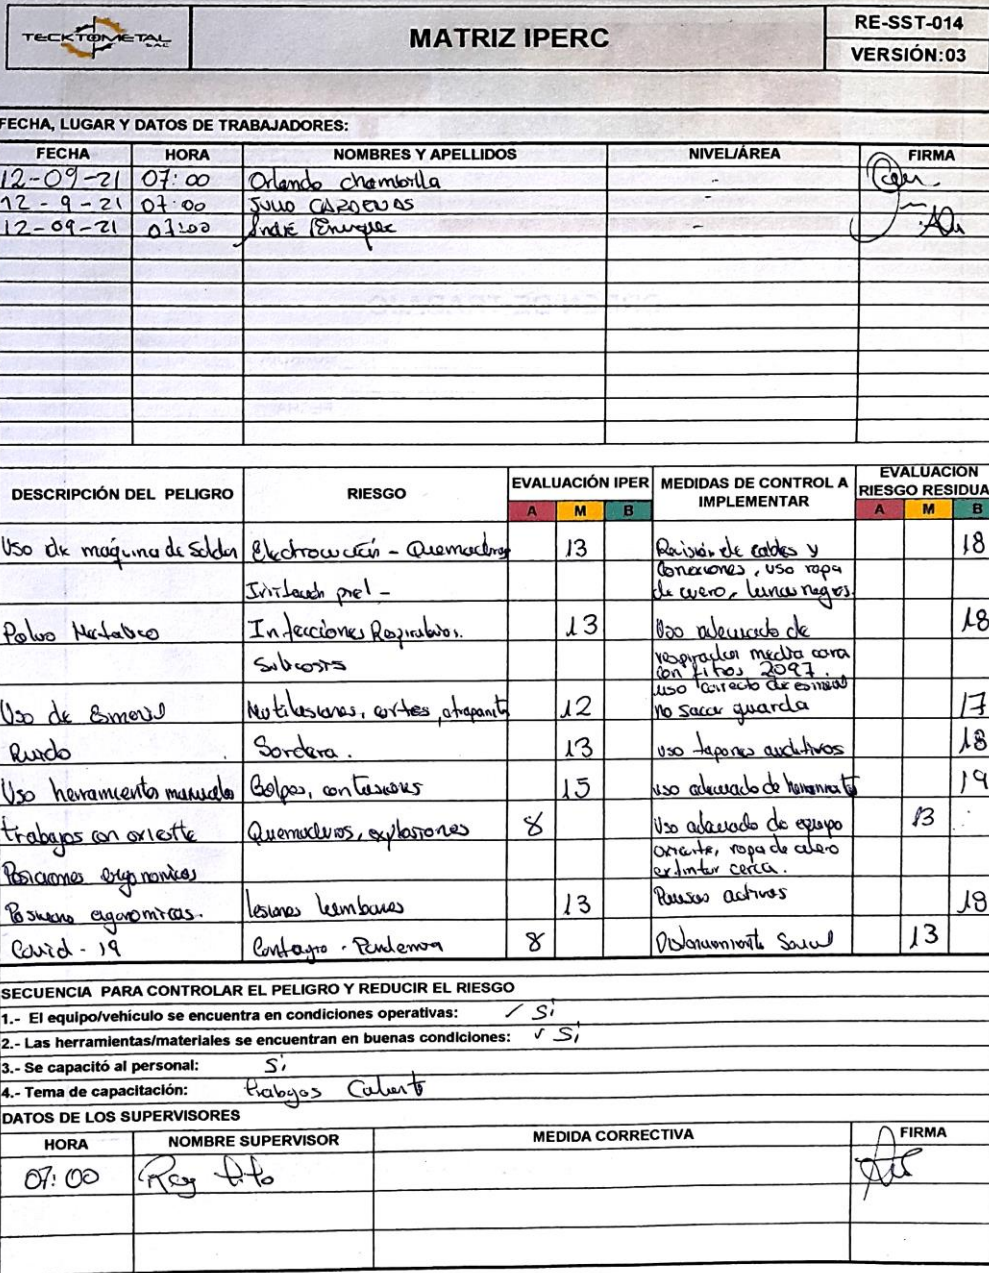 TECKTOMETAL
SAC
MATRIZ IPERC
RE-SST-014
VERSIÓN:03
FECHA, LUGAR Y DATOS DE TRABAJADORES:
FECHA HORA NOMBRES Y APELLIDOS NIVEL/ÁREA FIRMA
12-09-21 07:00 Orlando chambilla -
12-9-21 07:00 JULIO CARDENAS -
12-09-21 07:00 André Enriquez -
DESCRIPCIÓN DEL PELIGRO RIESGO EVALUACIÓN IPER MEDIDAS DE CONTROL A IMPLEMENTAR EVALUACION RIESGO RESIDUA
A M B A M B
Uso de máquina de Soldar Electrocución - Quemaduras 13 Revisión de cables y 18
Irritación piel - conexiones, uso ropa
de cuero, lunas negras.
Polvo Metalico Infecciones Respiratorios. 13 Uso adecuado de 18
Silicosis respirador media cara
con filtros 2097.
Uso de Esmeril Mutilaciones, cortes, 12 uso correcto de esmeril 17
no sacar guarda
Ruido Sordera. 13 uso tapones auditivos 18
Uso herramientas manuales Golpes, contusiones 15 uso adecuado de 19
trabajos con oxicorte Quemaduras, explosiones 8 Uso adecuado de equipo 13
oxicorte, ropa de cuero
extintor cerca.
Posiciones ergonomicas
Posiciones ergonomicas. lesiones lumbares 13 Pausas activas 18
Covid-19 Contagio - Pandemia 8 Distanciamiento Social 13
SECUENCIA PARA CONTROLAR EL PELIGRO Y REDUCIR EL RIESGO
1.- El equipo/vehículo se encuentra en condiciones operativas: ✓ Si
2.- Las herramientas/materiales se encuentran en buenas condiciones: ✓ Si
3.- Se capacitó al personal: Si
4.- Tema de capacitación: trabajos Caliente
DATOS DE LOS SUPERVISORES
HORA NOMBRE SUPERVISOR MEDIDA CORRECTIVA FIRMA
07:00 Ray tito